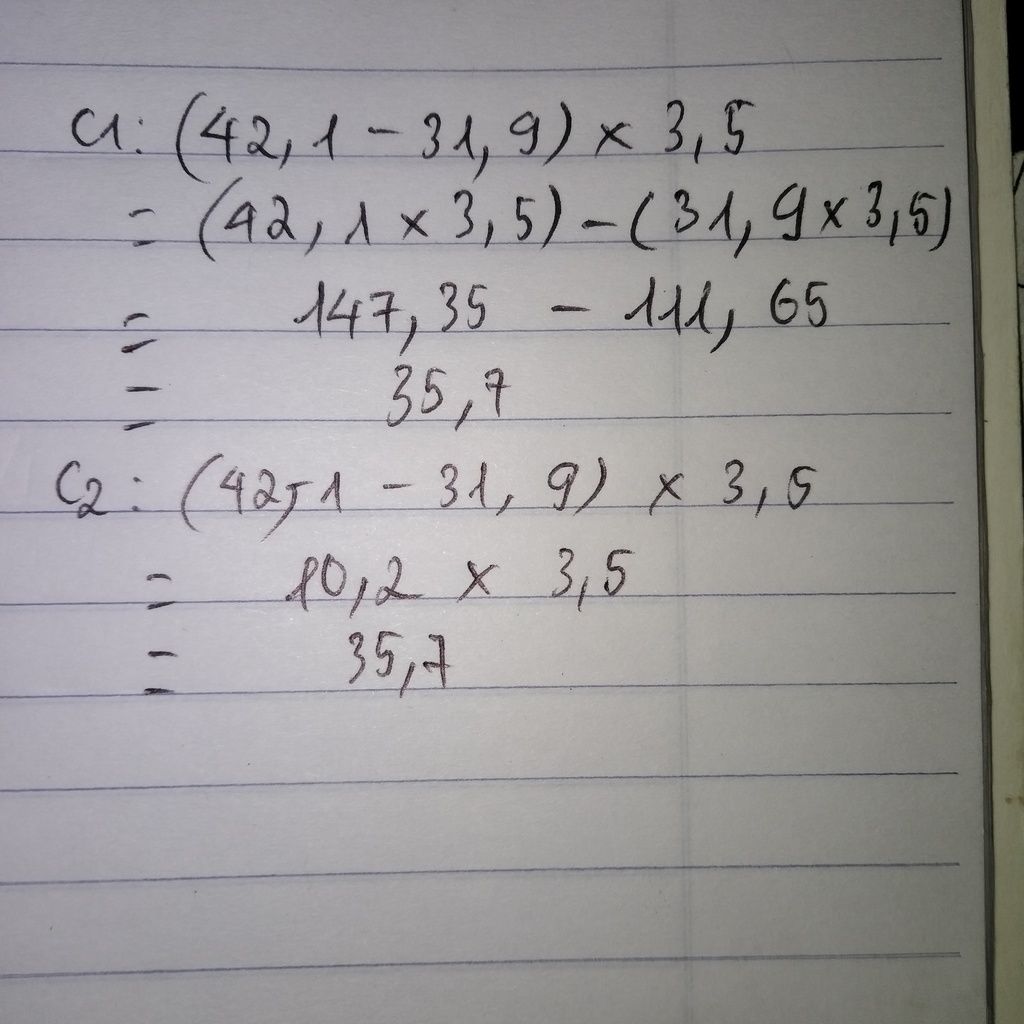 C1: (42,1 - 31,9) x 3,5
= (42,1 x 3,5) - (31,9 x 3,5)
= 147,35 - 111,65
= 35,7
C2: (42,1 - 31,9) x 3,5
= 10,2 x 3,5
= 35,7